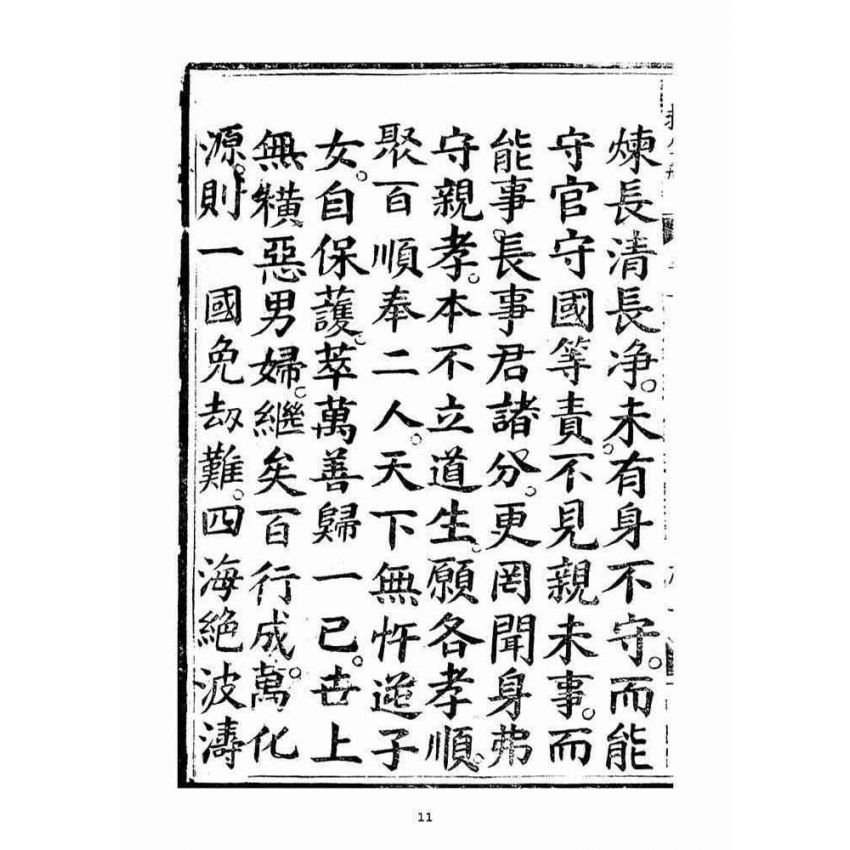 煉長清長净。未有身不守。而能
守官守國等責不見親未事。而
能事長事君諸分。更罔聞身弗
守親孝。本不立道生。願各孝順。
聚百順奉二人。天下無忤逆子
女。自保護。萃萬善歸一已。世上
無橫惡男婦。繼矣百行成。萬化
源。則一國免劫難。四海絶波濤
11